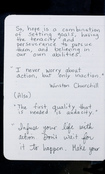 So, hope is a combination
of setting goals, having
the tenacity and
perseverance to pursue
them, and believing in
our own abilities.
I never worry about
action, but only inaction."
Winston Churchill
(Also)
"The first quality that
is needed is audacity."
Infuse your life with
action. Don't wait for
it to happen. Make your